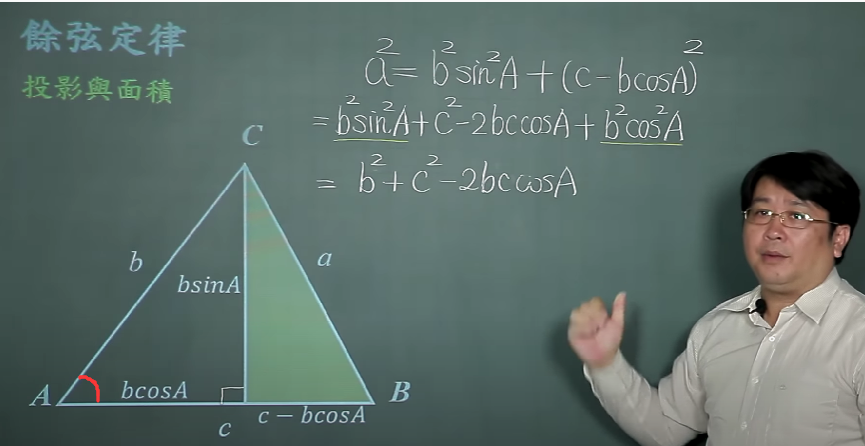 餘弦定律
投影與面積
a²= b²sin²A+(c-bcosA)²
= b²sin²A+c²-2bccosA+b²cos²A
= b²+c²-2bccosA
C
b
a
bsinA
A
bcosA
B
c
c − bcosA